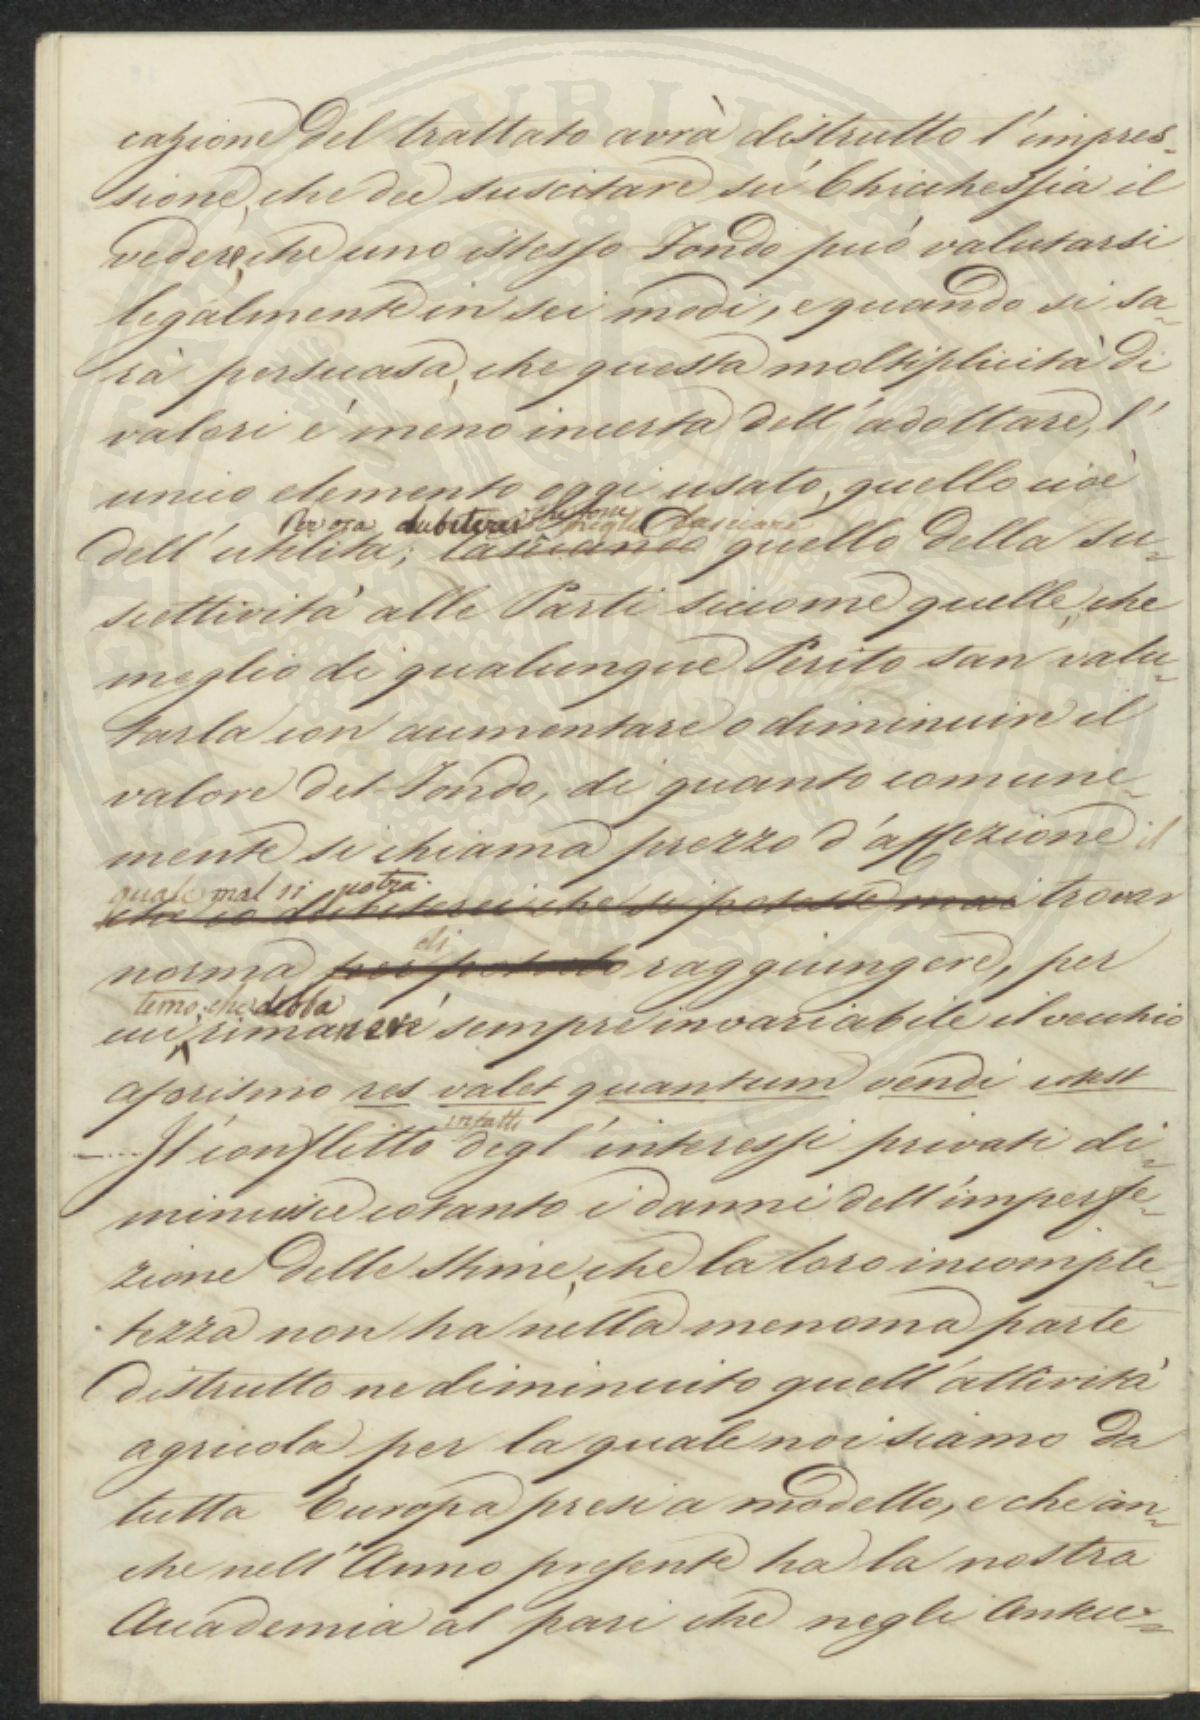 cazione del trattato avrà distrutto l'impres-
sione, che dee suscitare su' Chichessia il
vedere, che uno istesso Fondo può valutarsi
legalmente in sei modi, e quando si sa-
rà persuasa, che questa moltiplicità di
valori é meno incerta dell'adottare, l'
unico elemento oggi usato, quello cioè
Per ora dubiterei meglio lasciare
dell'utilità; lasciando quello della su-
scettività alle Parti siccome quelle, che
meglio di qualunque Perito san valu-
tarla con aumentare o diminuire il
valore del Fondo, di quanto comune-
mente si chiama prezzo d'affezione il
quale mal si potrà
che io dubiterei che si potesse mai trovar
di
norma per poterlo raggiungere, per
temo, che debba
cui, rimanere sempre invariabile il vecchio
aforismo res valet quantum vendi potest
infatti
Il conflitto degl'interessi privati di-
minuisce cotanto i danni dell'imperfe-
zione delle Stime, che la loro incomple-
tezza non ha nella menoma parte
distrutto ne diminuito quell'attività
agricola per la quale noi siamo da
tutta Europa presi a modello, e che an-
che nell'Anno presente ha la nostra
Accademia al pari che negli Antece-